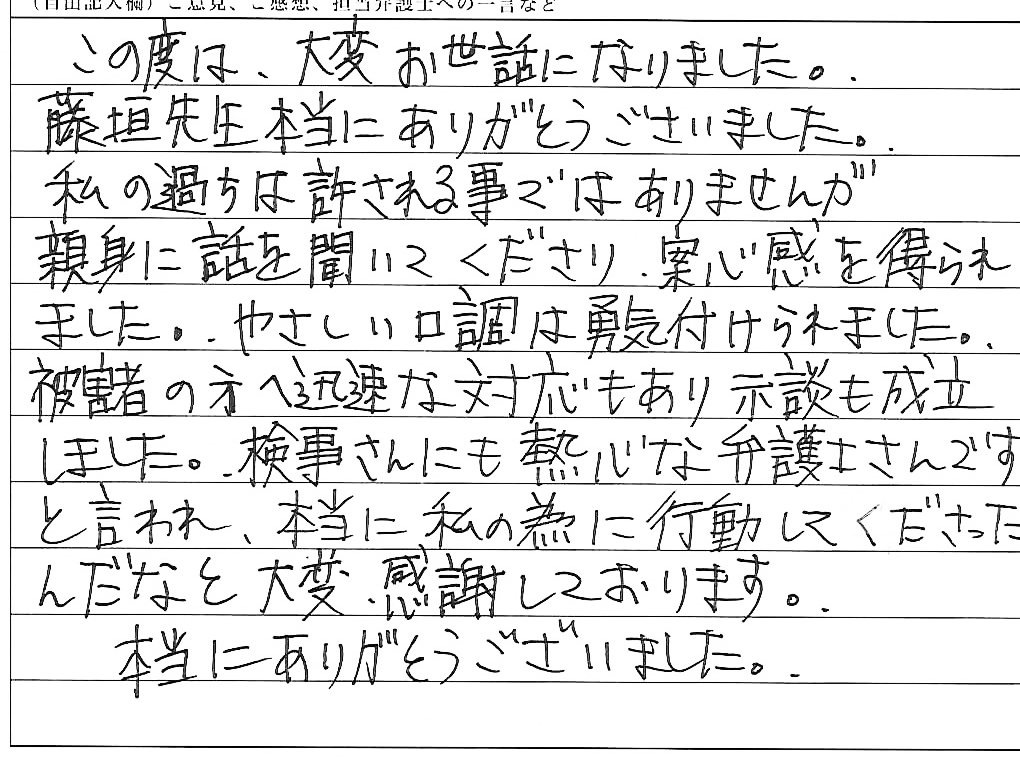 (自由記入欄)ご意見、ご感想、担当弁護士への一言など
この度は、大変お世話になりました。
藤垣先生本当にありがとうございました。
私の過ちは許される事ではありませんが
親身に話を聞いてくださり、安心感を得られ
ました。やさしい口調は勇気付けられました。
被害者の方へ迅速な対応もあり示談も成立
しました。検事さんにも熱心な弁護士さんです
と言われ、本当に私の為に行動してくださった
んだなと大変、感謝しております。
本当にありがとうございました。